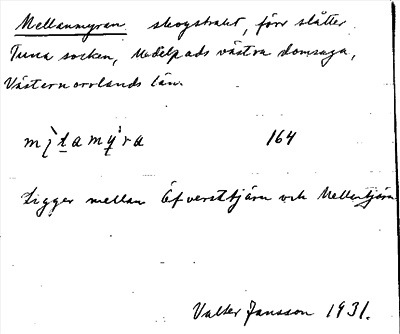 Mellanmyran skogstrakt, förr slåtter.
Tuna socken, Medelpads västra domsaga,
Västernorrlands län.
164
Ligger mellan Öfversttjärn och Mellantjärn
Valter Jansson 1931.